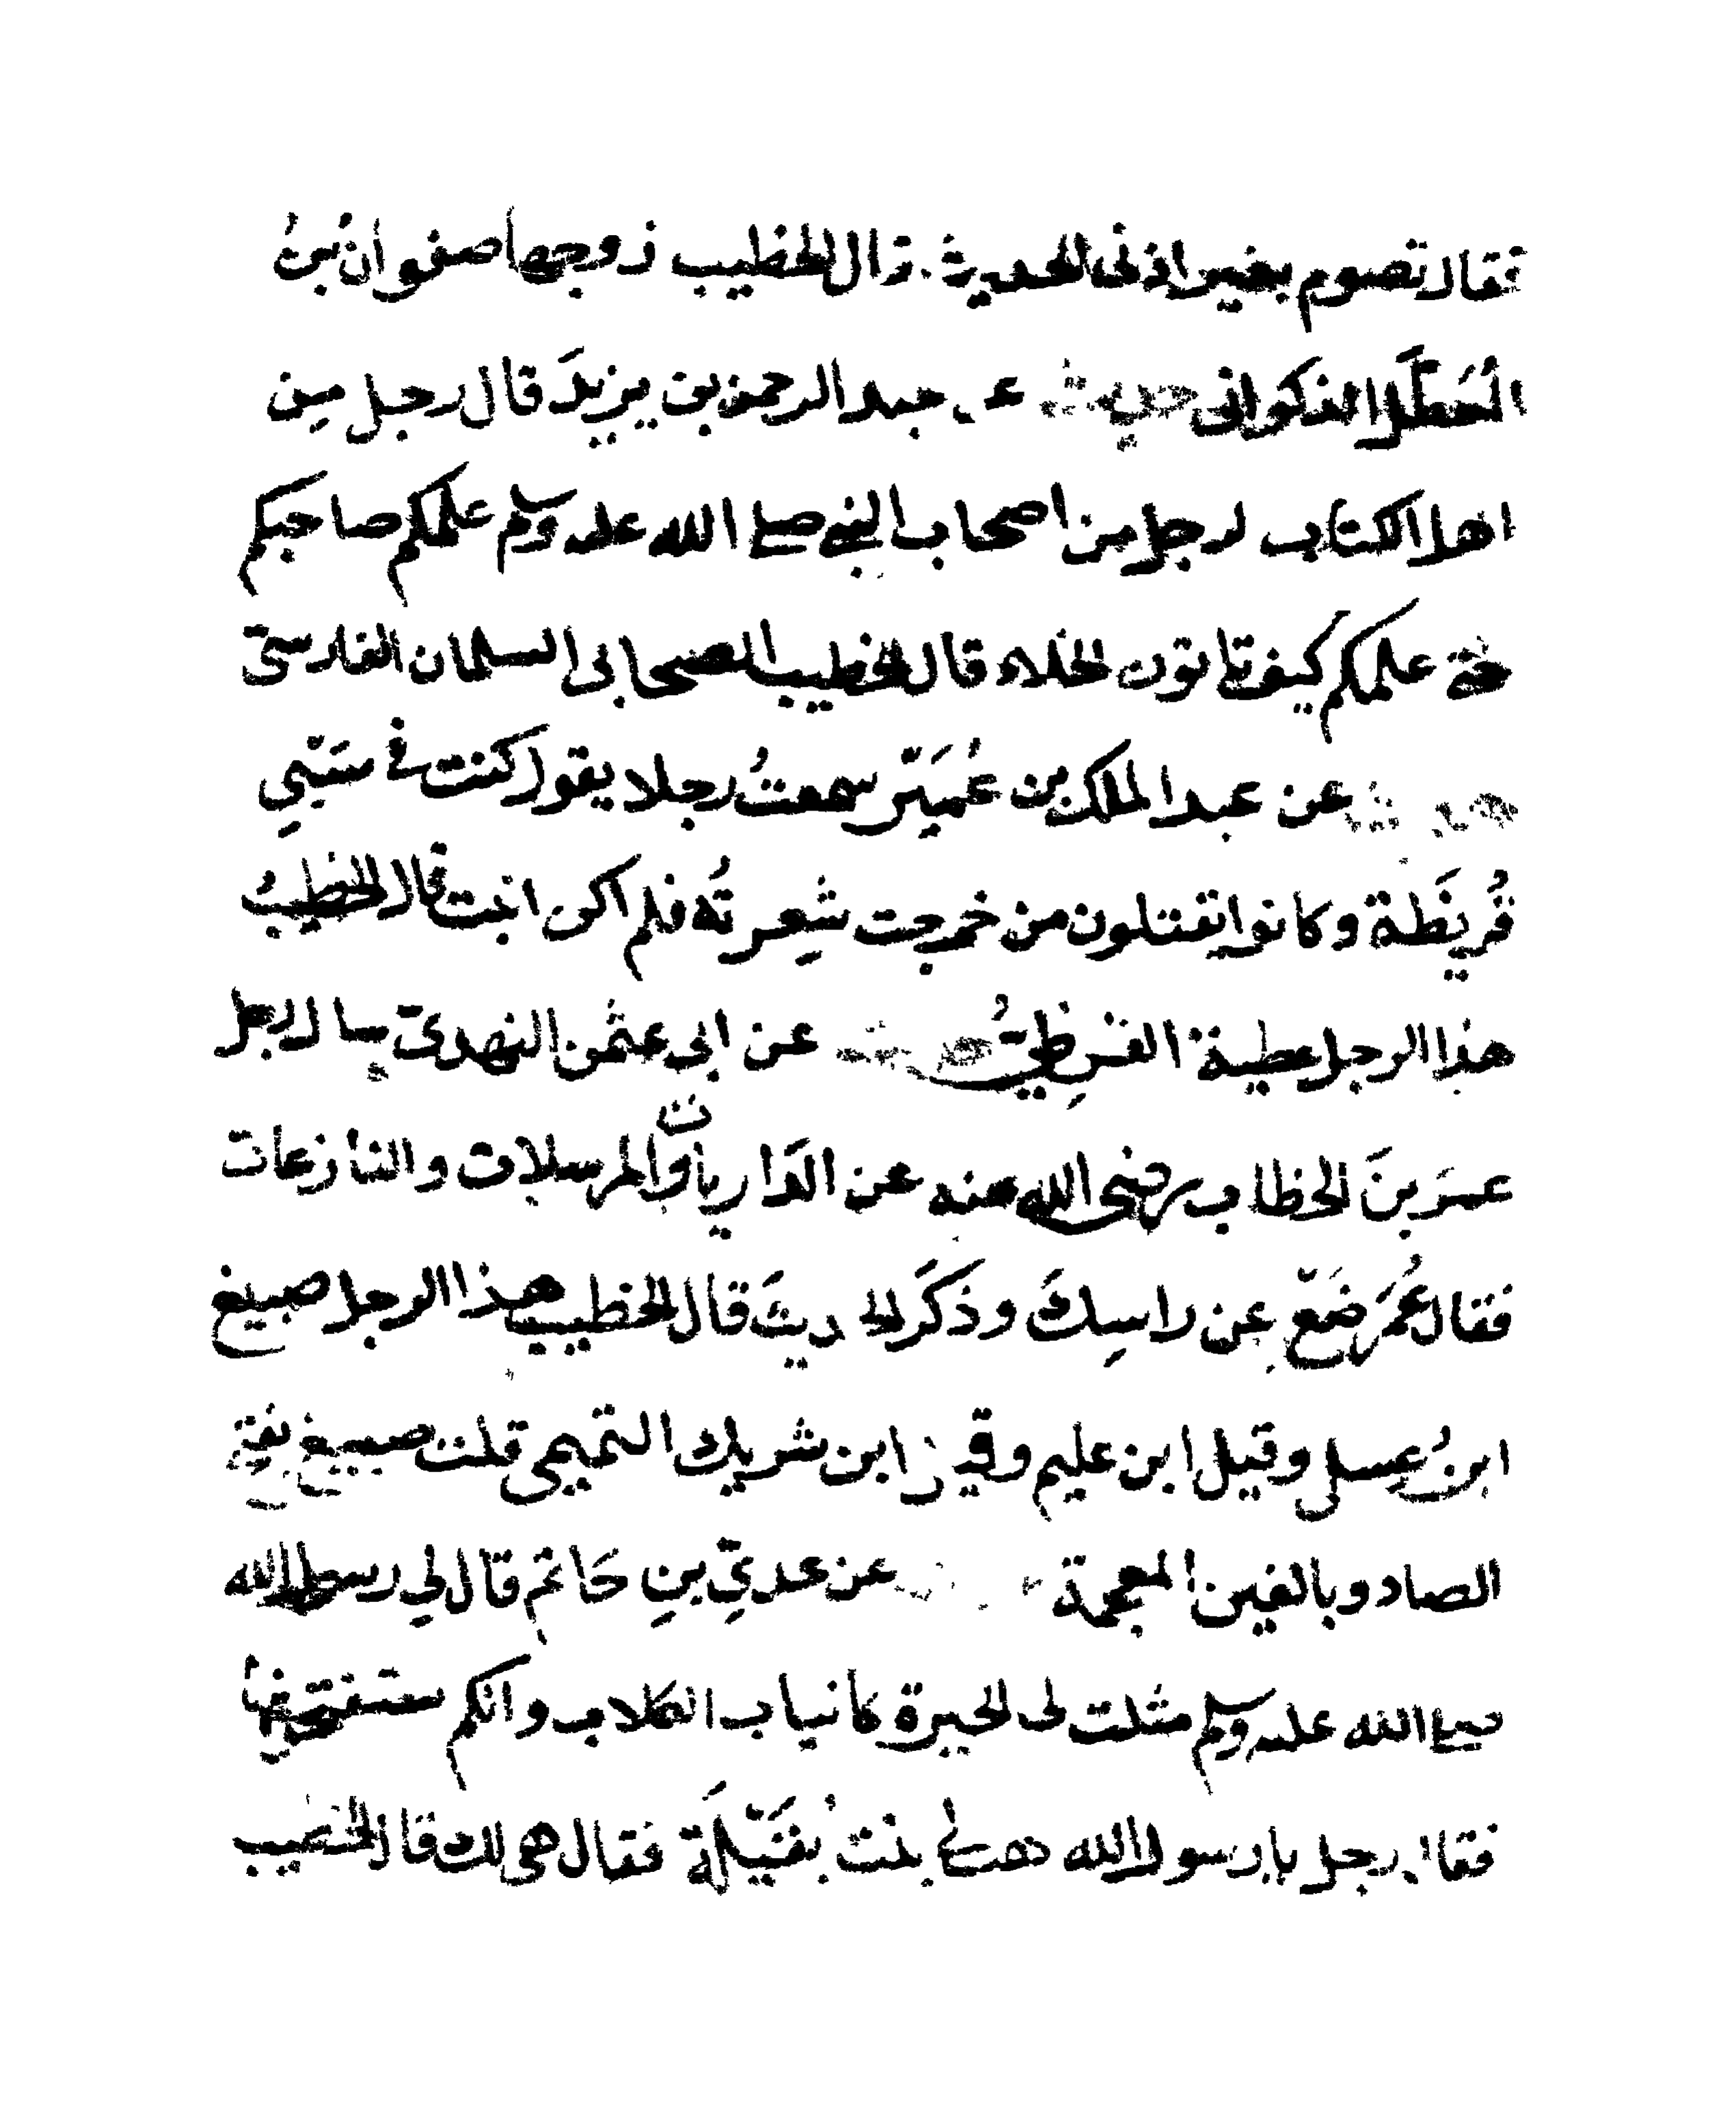 فقال تصوم بغير اذنى الحديث قال الخطيب زوجها صفوانُ بنُ
المُعَطَّل الذكوانى حديث عن عبد الرحمن بن يزيدَ قال رجل مِن
اهل الكتاب لرجل من اصحاب النبى صلى الله عليه وسلم علمكم صاحبكم
حتى علمكم كيف تاتون الخلاء قال الخطيب الصحابى السلمان الفارسىّ
حديث عن عبد الملك بن عُمَيْر سمعتُ رجلا يقول كنت فى سَبْيِ
قُريَظة وكانوا يقتلون من خرجت شِعرتُه فلم اكن انبت قال الخطيبُ
هذا الرجل عطية القُرَظِيُّ حديث عن ابى عثمن النهدىّ سال رجل
عمرَ بنَ الخطاب رضى الله عنه عن الذاريات والمرسلات والنازعات
فقال عُمَرُ ضَعْ عن راسِكَ وذكَر الحديثَ قال الخطيب هذا الرجل صبيغ
ابنُ عِسل وقيل ابن عليم وقيل ابن شريك التميمى قلت صبيغ بفتح
الصاد وبالغين المعجمة عن عديِّ بنِ حَاتم قال لي رسول الله
صلى الله عليه وسلم مثلت لى الحيرة كانياب الكلاب وانكم ستفتحونها
فقال رجل يا رسول الله هب لى بنتُ بُقَيْلَة فقال هى لك قال الخطيب